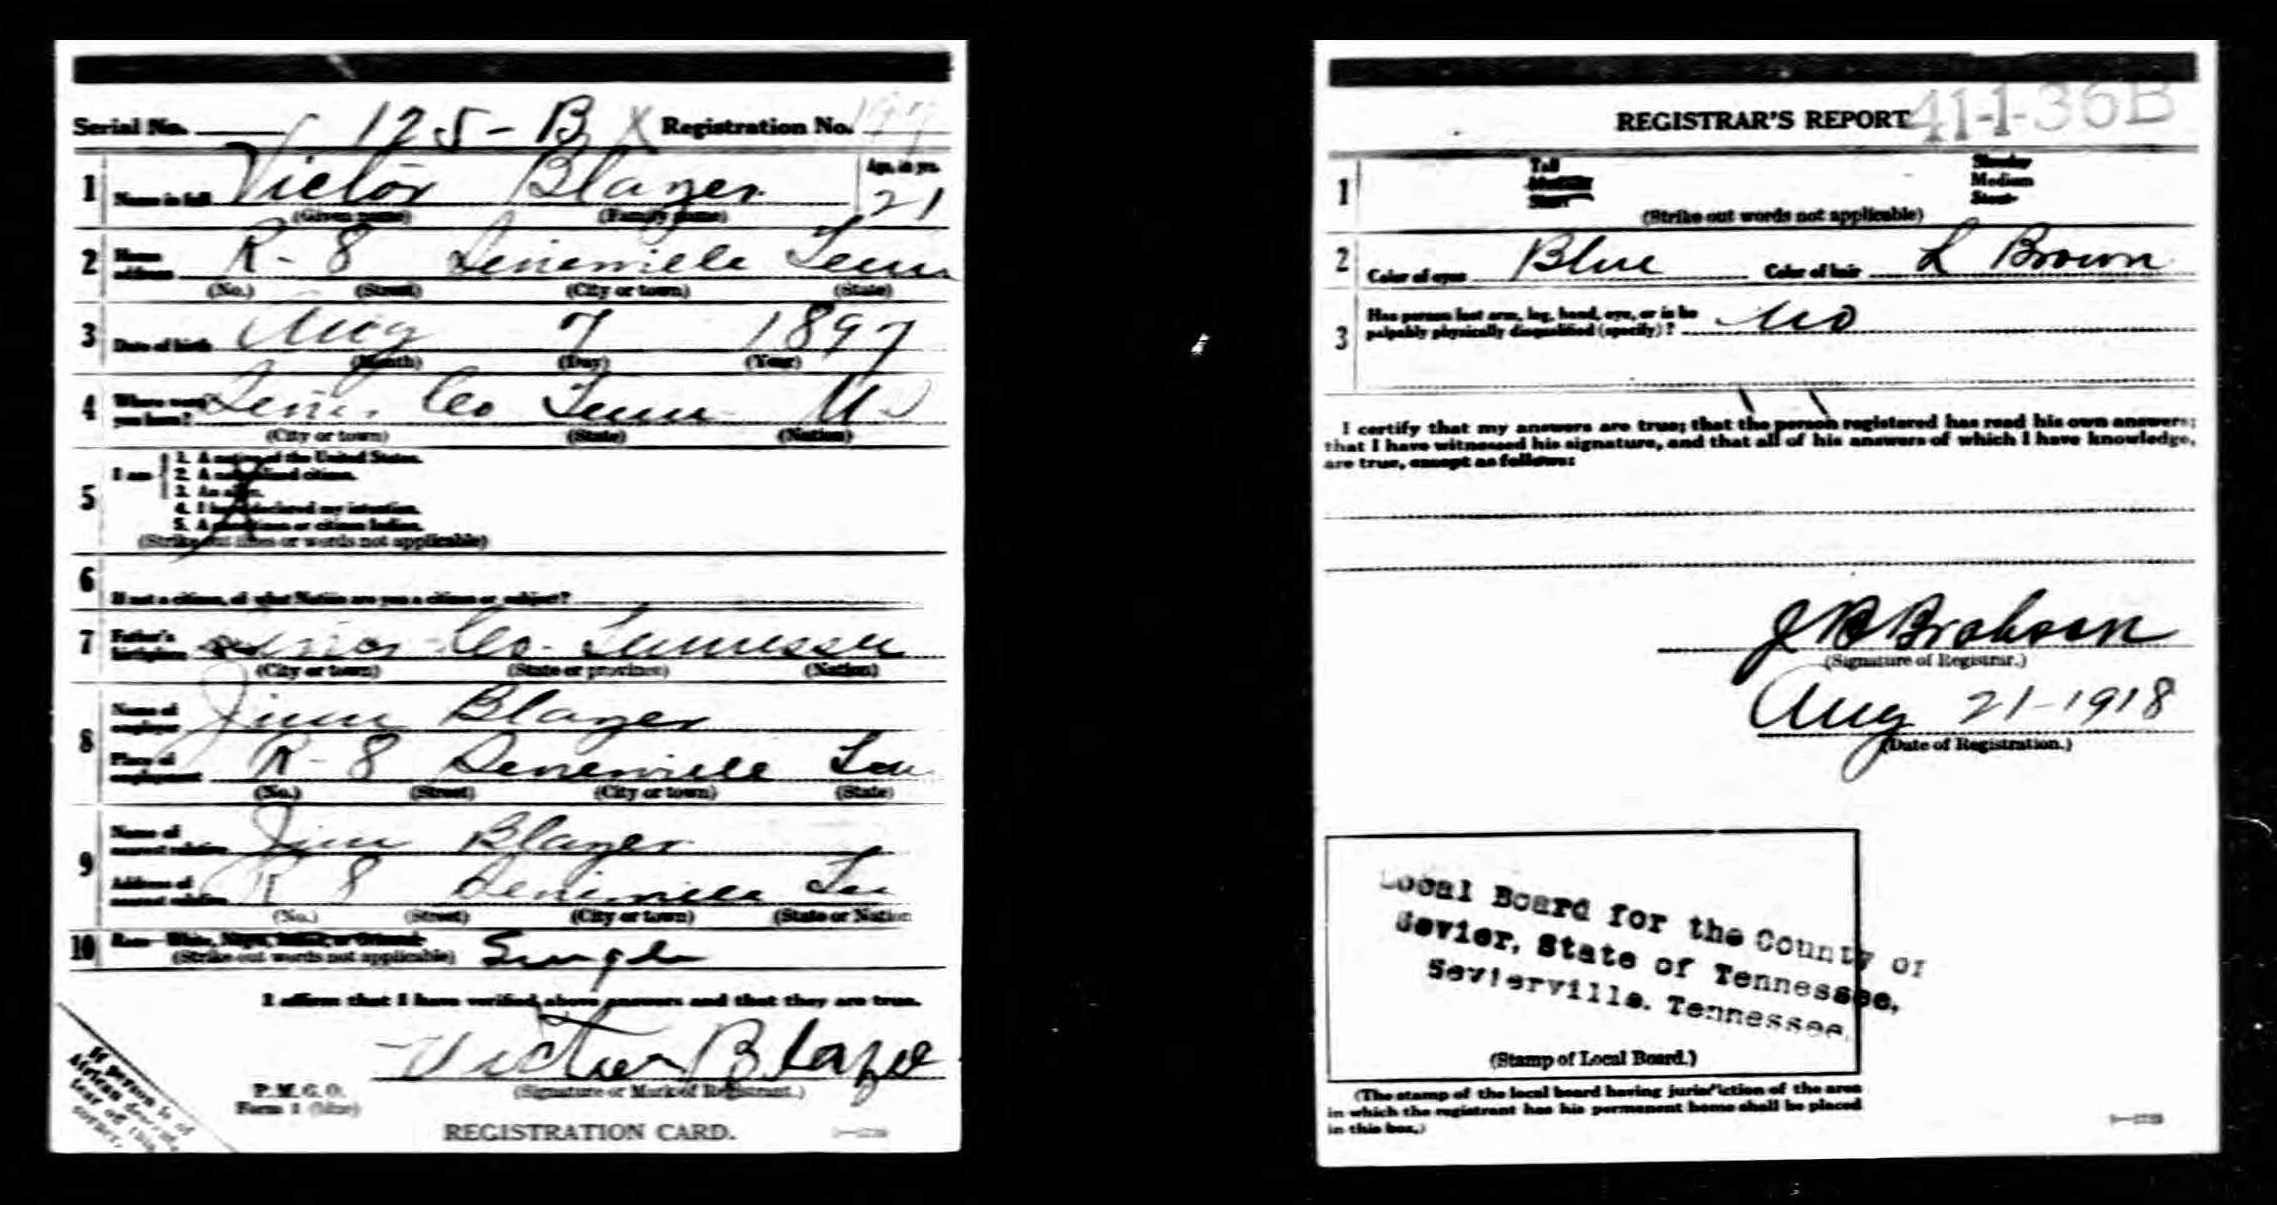 Serial No. 125-B X Registration No. 197
1 Name in full Victor Blazer Age, in yrs. 21
(Given name) (Family name)
2 Home address R-8 Sevierville Tenn
(No.) (Street) (City or town) (State)
3 Date of birth Aug 7 1897
(Month) (Day) (Year)
4 Where were you born? Co Tenn U
(City or town) (State) (Nation)
5 I am 1. A native of the United States.
2. A naturalized citizen.
3. An alien.
4. I have declared my intention.
5. A noncitizen or citizen Indian.
(Strike out lines or words not applicable)
6 If not a citizen, of what Nation are you a citizen or subject?
7 Father's birthplace Co. Tennessee
(City or town) (State or province) (Nation)
8 Name of employer Jim Blazer
Place of employment R-8 Sevierville Ten
(No.) (Street) (City or town) (State)
9 Name of nearest relative Jim Blazer
Address of nearest relative R 8 Sevierville Ten
(No.) (Street) (City or town) (State or Nation
10 Race—White, Negro, Indian, or Oriental.
(Strike out words not applicable) Single
I affirm that I have verified above answers and that they are true.
Victor Blazer
(Signature or Mark of Registrant.)
P. M. G. O.
Form 1 (blue)
REGISTRATION CARD.
If person is
African descent,
tear off this
corner.
REGISTRAR'S REPORT 41-1-36B
1 Tall Slender
Medium Medium
Short Stout
(Strike out words not applicable)
2 Color of eyes Blue Color of hair L Brown
3 Has person lost arm, leg, hand, eye, or is he
palpably physically disqualified (specify)? No
I certify that my answers are true; that the person registered has read his own answers;
that I have witnessed his signature, and that all of his answers of which I have knowledge,
are true, except as follows:
J B Brabson
(Signature of Registrar.)
Aug 21-1918
(Date of Registration.)
Local Board for the County of
Sevier, State of Tennessee,
Sevierville, Tennessee.
(Stamp of Local Board.)
(The stamp of the local board having jurisdiction of the area
in which the registrant has his permanent home shall be placed
in this box.)